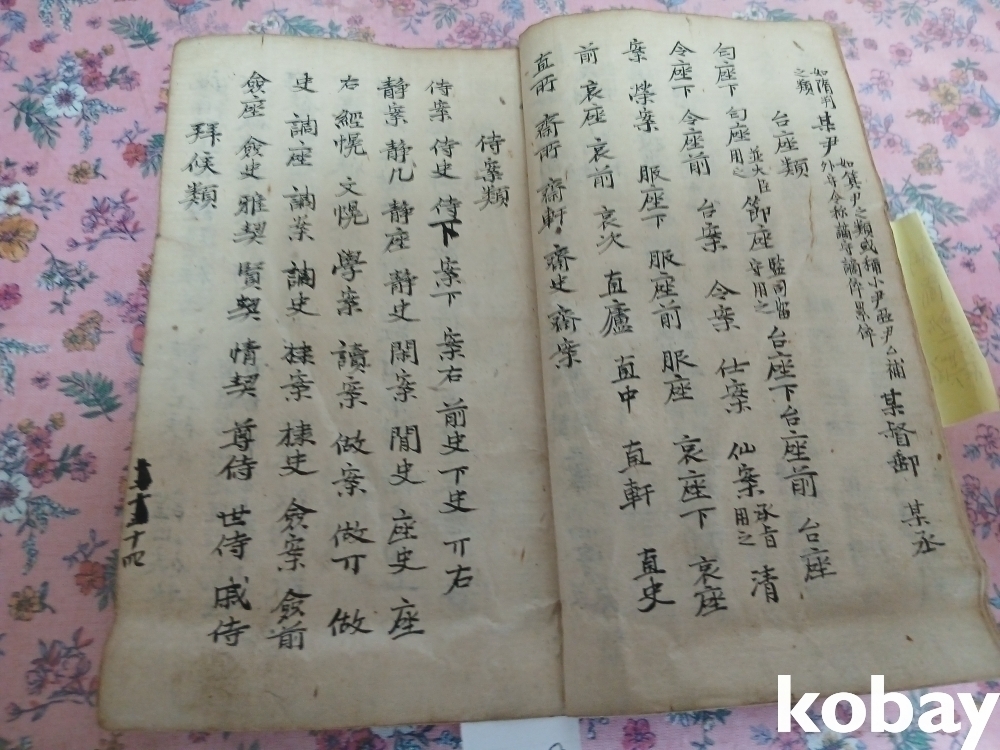 如隋州
之類
某尹
如箕尹之類或稱小尹亞尹
外
某督郵 某丞
台座類
台座下 台座前 台座
匀座下 匀座 用之 並大臣 節座 監司留守用之
令座下 令座前 台案 令案 仕案 仙案 承旨用之 清
案 榮案 服座下 服座前 服座 哀座下 哀座
前 哀座 哀前 哀次 直廬 直中 直軒 直史
直所 齋所 齋軒 齋史 齋案
侍案類
侍案 侍史 侍下 案下 案右 前史 下史 丌右
静案 静几 静座 静史 閑案 閒史 座史 座
右 經幌 文幌 學案 讀案 做案 做丌 做
史 調座 調案 調史 棣案 棣史 僉案 僉前
僉座 僉史 雅契 賢契 情契 尊侍 世侍 戚侍
拜候類
十四
kobay